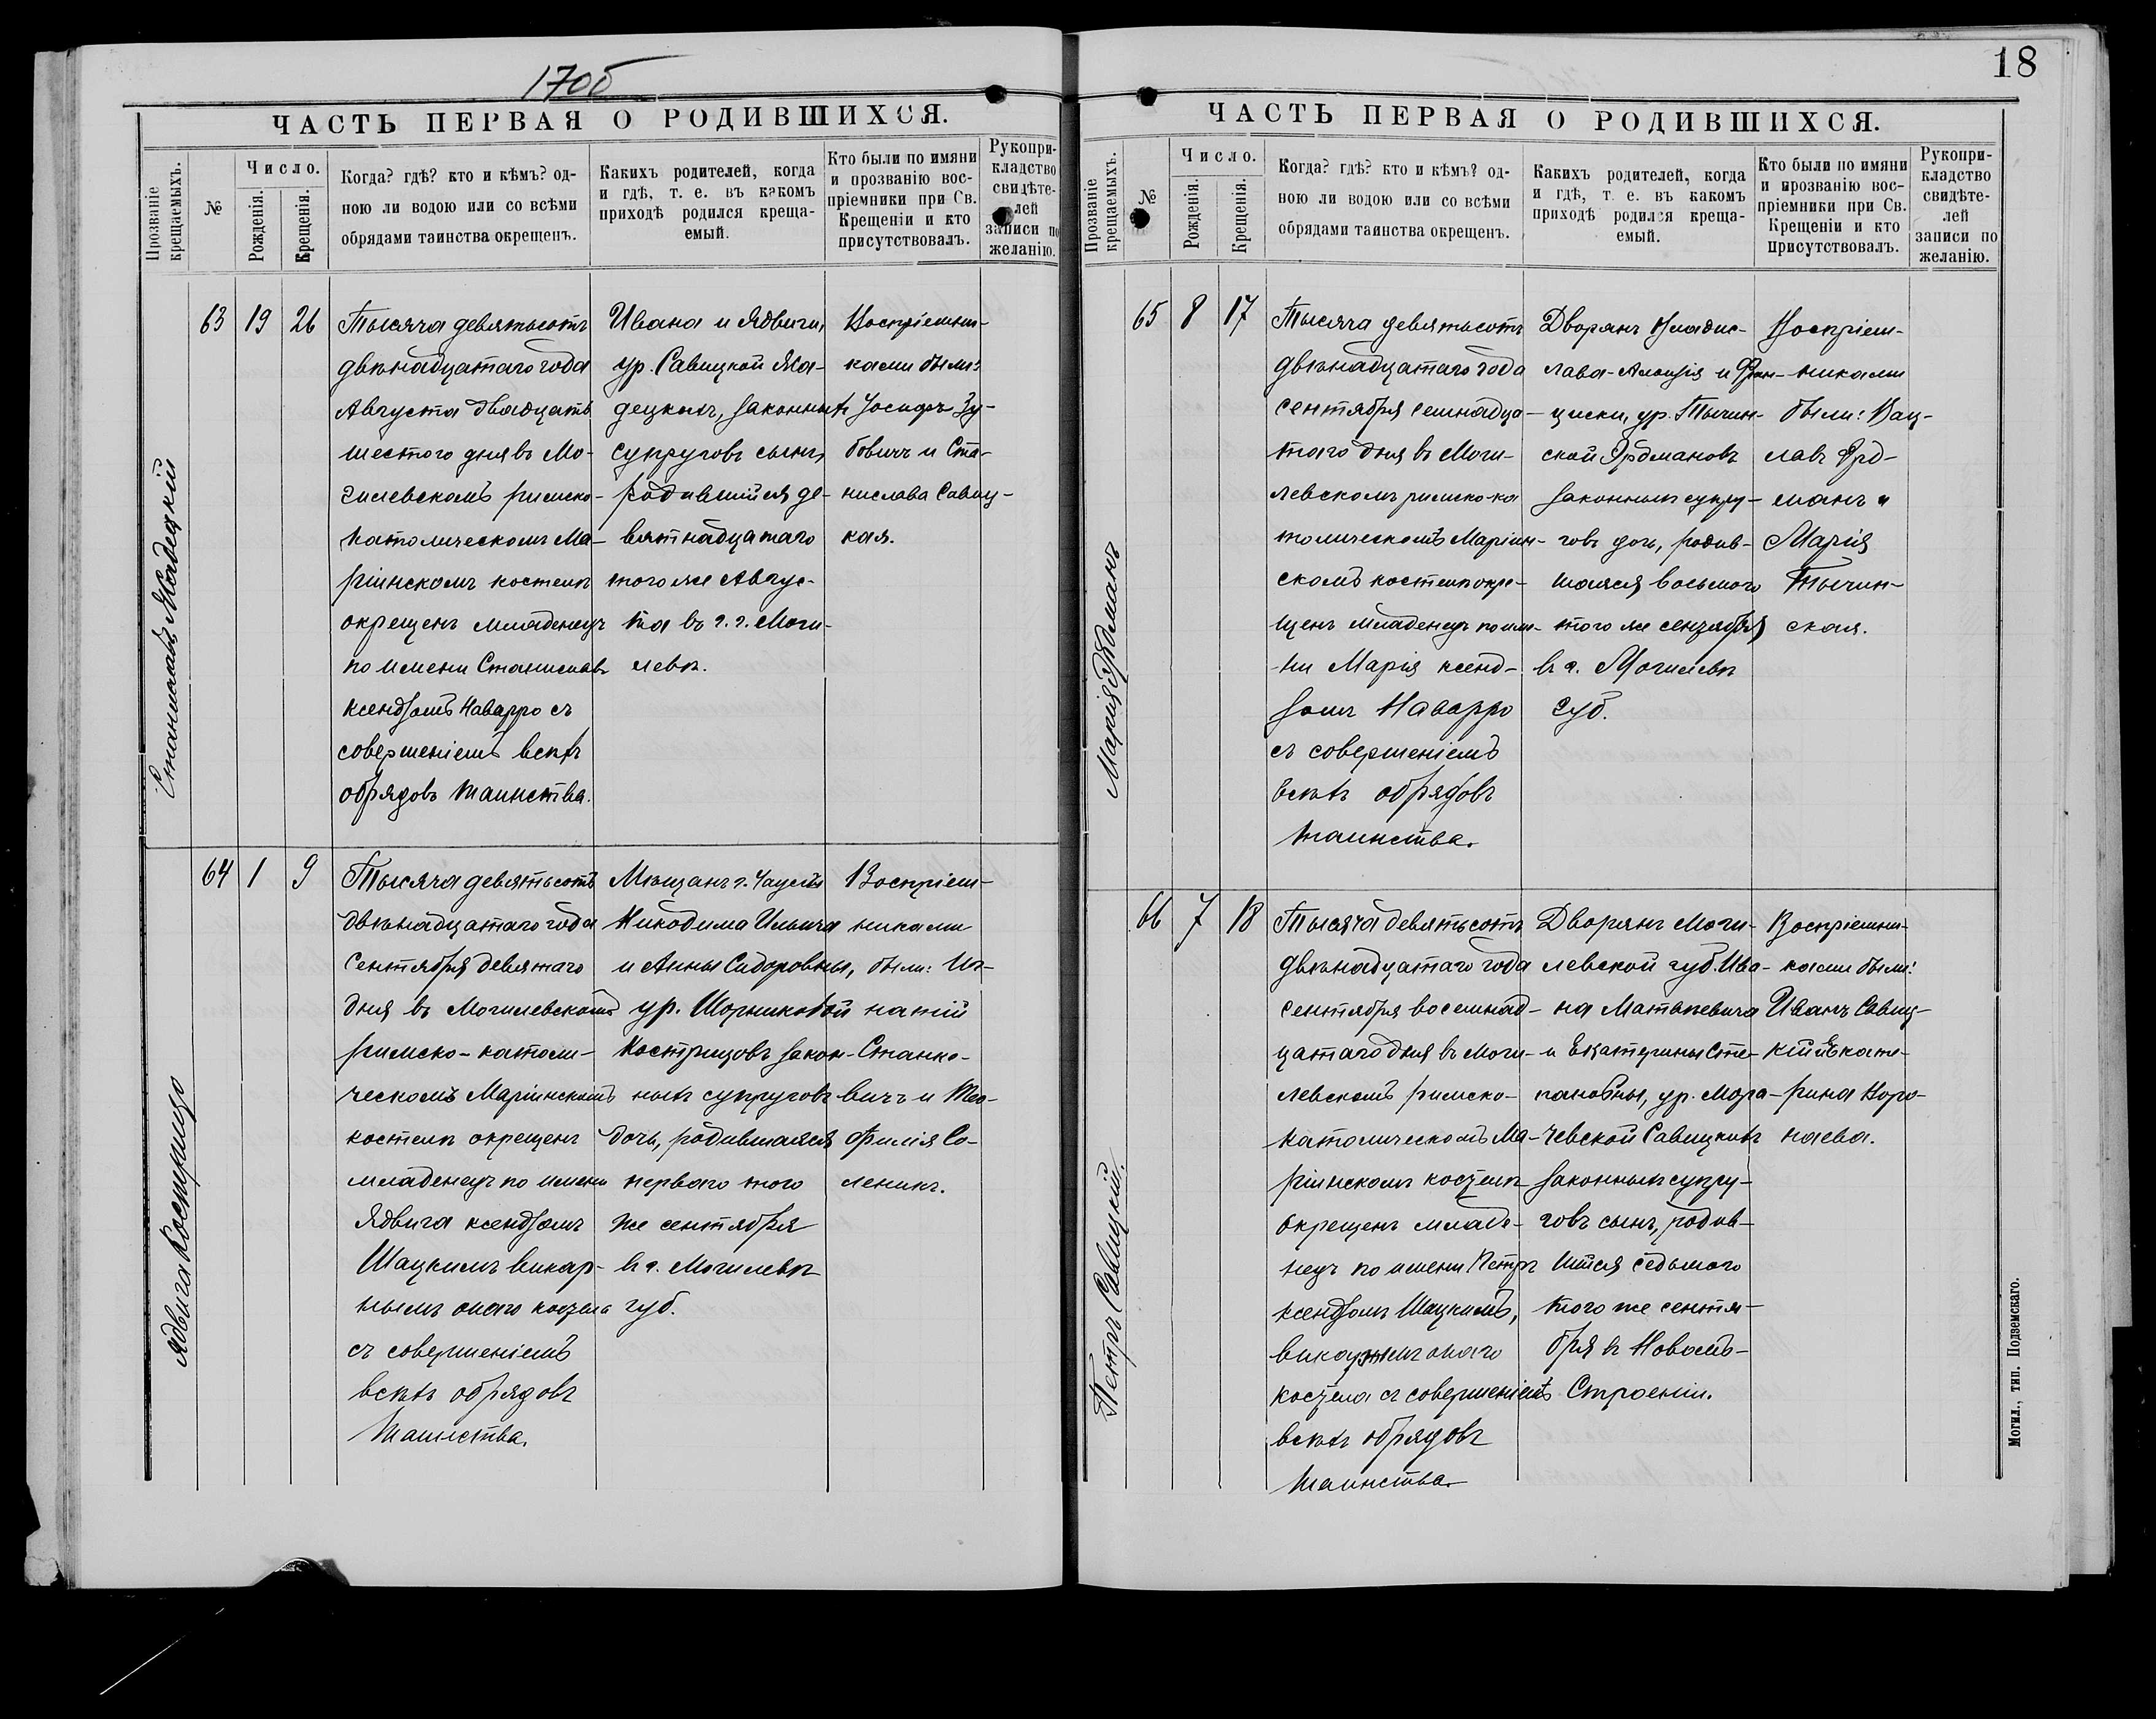 17об
ЧАСТЬ ПЕРВАЯ О РОДИВШИХСЯ.
Прозваніе крещаемыхъ.
№
Число.
Рожденія.
Крещенія.
Когда? гдѣ? кто и кѣмъ? од-
ною ли водою или со всѣми
обрядами таинства окрещенъ.
Какихъ родителей, когда
и гдѣ, т. е. въ какомъ
приходѣ родился креща-
емый.
Кто были по имяни
и прозванію вос-
пріемники при Св.
Крещеніи и кто
присутствовалъ.
Рукопри-
кладство
свидѣте-
лей
записи по
желанію.
Станиславъ
63
19
26
Тысяча девятьсотъ
двѣнадцатаго года
Августа двадцать
шестого дня въ Мо-
гилевскомъ римско-
католическомъ Ма-
ріинскомъ костелѣ
окрещенъ младенецъ
по имени Станиславъ
ксендзомъ Наварро съ
совершеніемъ всѣхъ
обрядовъ таинства.
Ивана и Ядвиги,
ур. Савицкой
децкихъ, законныхъ
супруговъ сынъ,
родившійся де-
вятнадцатаго
того же Авгус-
та въ г. г. Моги-
левѣ.
Воспріемни-
ками были:
Іосифъ Зу-
бовичъ и Ста-
нислава Савиц-
кая.
Ядвига Кострицо
64
1
9
Тысяча девятьсотъ
двѣнадцатаго года
Сентября девятаго
дня въ Могилевскомъ
римско-католи-
ческомъ Маріинскомъ
костелѣ окрещенъ
младенецъ по имени
Ядвига ксендзомъ
Шацкимъ викар-
нымъ онаго костела
съ совершеніемъ
всѣхъ обрядовъ
таинства.
Мѣщанъ г. Чаусы
Никодима Ильича
и Анны Сидоровны,
ур. Шорниковой
Кострицовъ закон-
ныхъ супруговъ
дочь, родившаяся
перваго того
же сентября
въ г. Могилевѣ
губ.
Воспріем-
никами
были: Иг-
натій
Станке-
вичъ и Тео-
филія Со-
леникъ.
18
ЧАСТЬ ПЕРВАЯ О РОДИВШИХСЯ.
Прозваніе крещаемыхъ.
№
Число.
Рожденія.
Крещенія.
Когда? гдѣ? кто и кѣмъ? од-
ною ли водою или со всѣми
обрядами таинства окрещенъ.
Какихъ родителей, когда
и гдѣ, т. е. въ какомъ
приходѣ родился креща-
емый.
Кто были по имяни
и прозванію вос-
пріемники при Св.
Крещеніи и кто
присутствовалъ.
Рукопри-
кладство
свидѣте-
лей
записи по
желанію.
Марія Эрдманъ
65
8
17
Тысяча девятьсотъ
двѣнадцатаго года
сентября семнадца-
таго дня въ Моги-
левскомъ римско-ка
толическомъ Маріин-
скомъ костелѣ окре-
щенъ младенецъ по име-
ни Марія ксенд-
зомъ Наварро
съ совершеніемъ
всѣхъ обрядовъ
таинства.
Дворянъ Владис-
лава-Алоизія и Фран-
циски, ур. Тычин-
ской Эрдмановъ
законныхъ супру-
говъ дочь, родив-
шаяся восьмого
того же сентября
въ г. Могилевѣ
губ.
Воспріем-
никами
были: Вац-
лавъ Эрд-
манъ и
Марія
Тычин-
ская.
Петръ Савицкій.
66
7
18
Тысяча девятьсотъ
двѣнадцатаго года
сентября восемнад-
цатаго дня въ Моги-
левскомъ римско-
католическомъ Ма-
ріинскомъ костелѣ
окрещенъ младе-
нецъ по имени Петръ
ксендзомъ Шацкимъ,
викарнымъ онаго
костела съ совершеніемъ
всѣхъ обрядовъ
таинства.
Дворянъ Моги-
левской губ. Ива-
на Матвѣевича
и Екатерины Сте-
пановны, ур. Мора-
чевской Савицкихъ
законныхъ супру-
говъ сынъ, родив-
шійся седьмого
того же сентя-
бря въ Новомъ-
Строеніи.
Воспріемни-
ками были:
Иванъ Савиц-
кій и Екате-
рина Воро-
наева.
Могил., тип. Подземскаго.